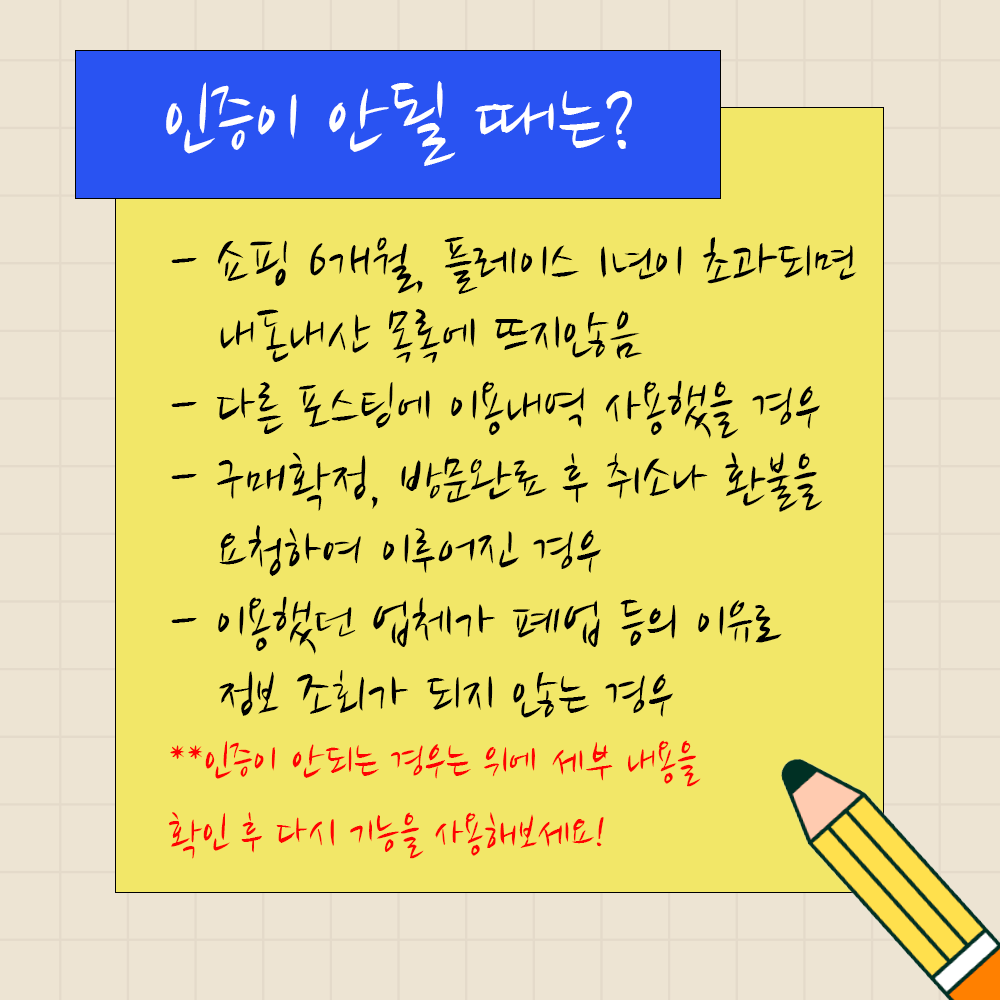 인증이 안될 때는?
- 쇼핑 6개월, 플레이스 1년이 초과되면
내돈내산 목록에 뜨지않음
- 다른 포스팅에 이용내역 사용했을 경우
- 구매확정, 방문완료 후 취소나 환불을
요청하여 이루어진 경우
- 이용했던 업체가 폐업 등의 이유로
정보 조회가 되지 않는 경우
**인증이 안되는 경우는 위에 세부 내용을
확인 후 다시 기능을 사용해보세요!